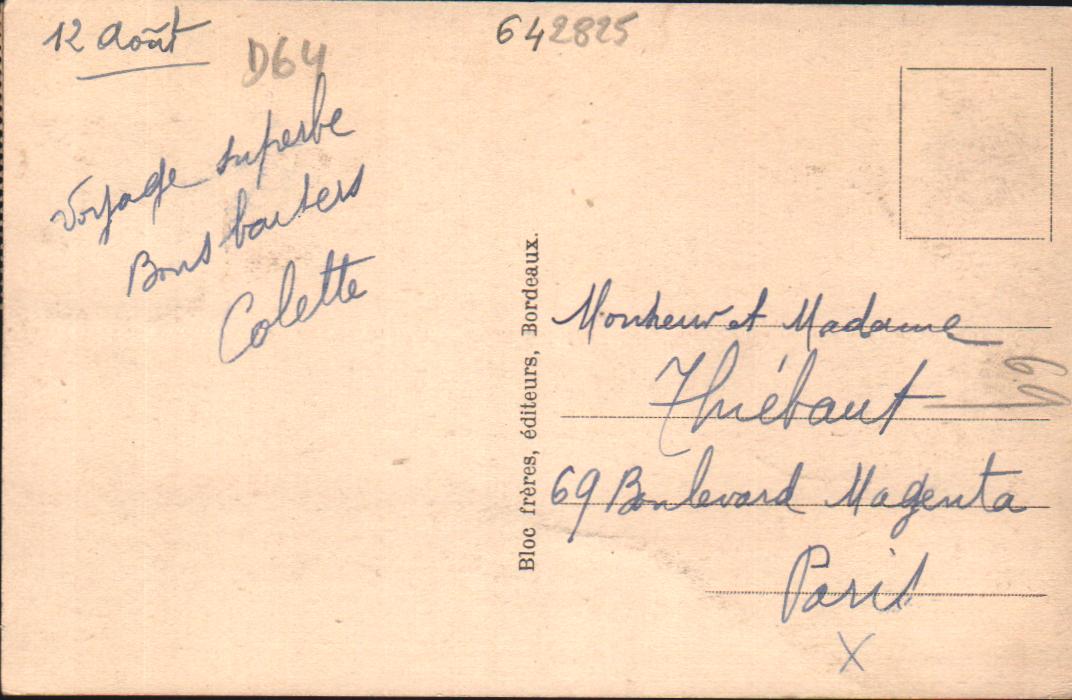 12 Août
D64
642825
Voyage superbe
Bons baisers
Colette
Bloc frères, éditeurs, Bordeaux.
Monsieur et Madame
Thiébaut
69 Boulevard Magenta
Paris
X